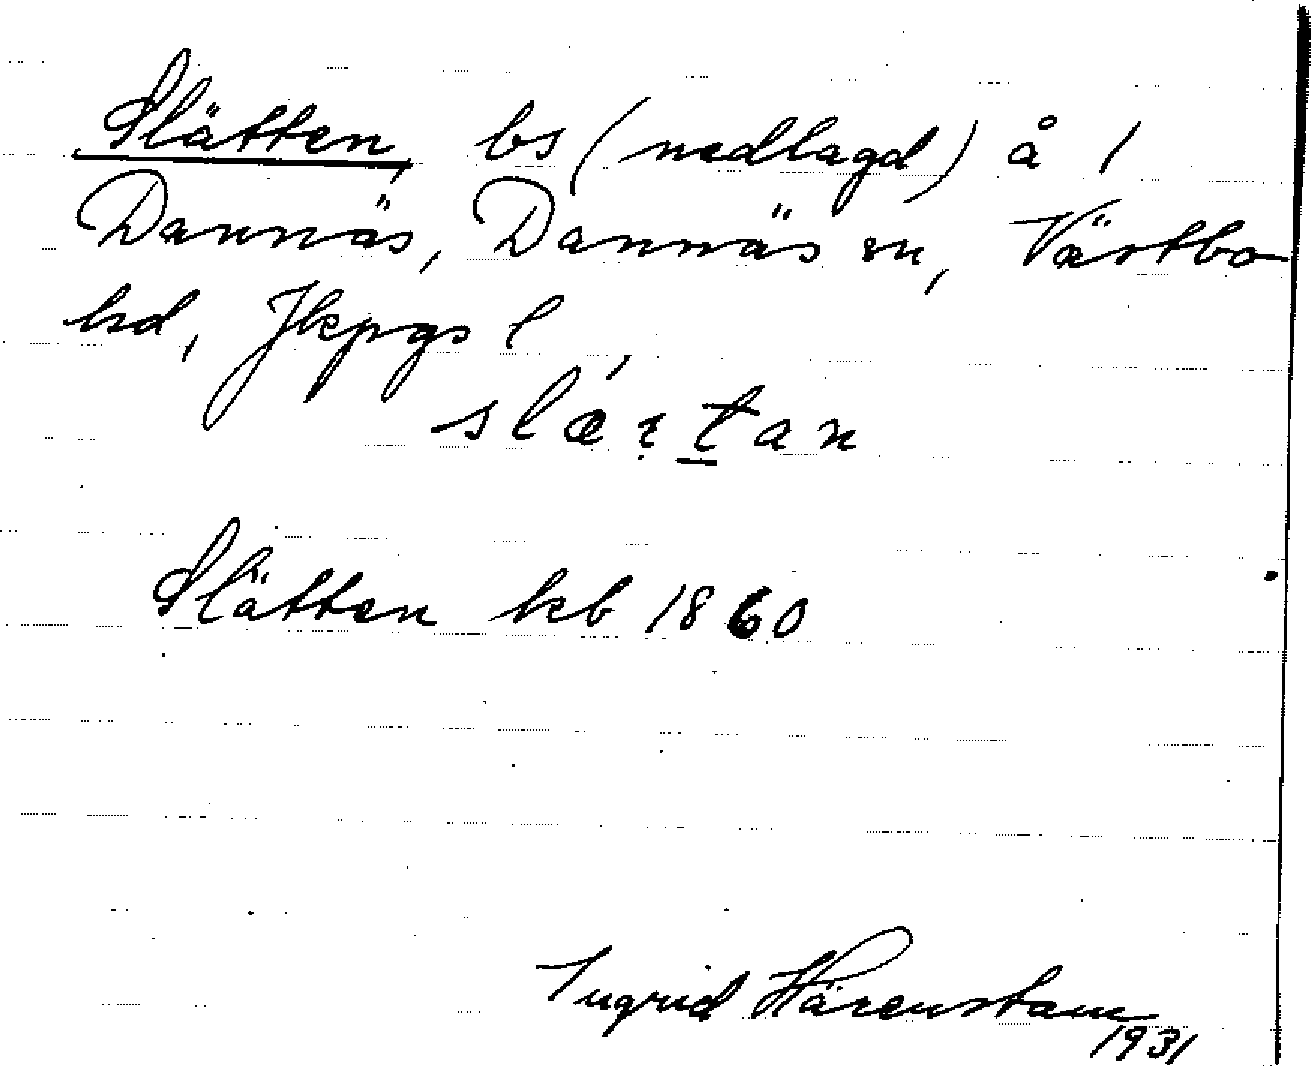 Slätten, bs (nedlagd) å 1
Dannäs, Dannäs sn, Västbo
hd, Jkpgs l,
Slätten kb 1860
Ingrid Härenstam
1931